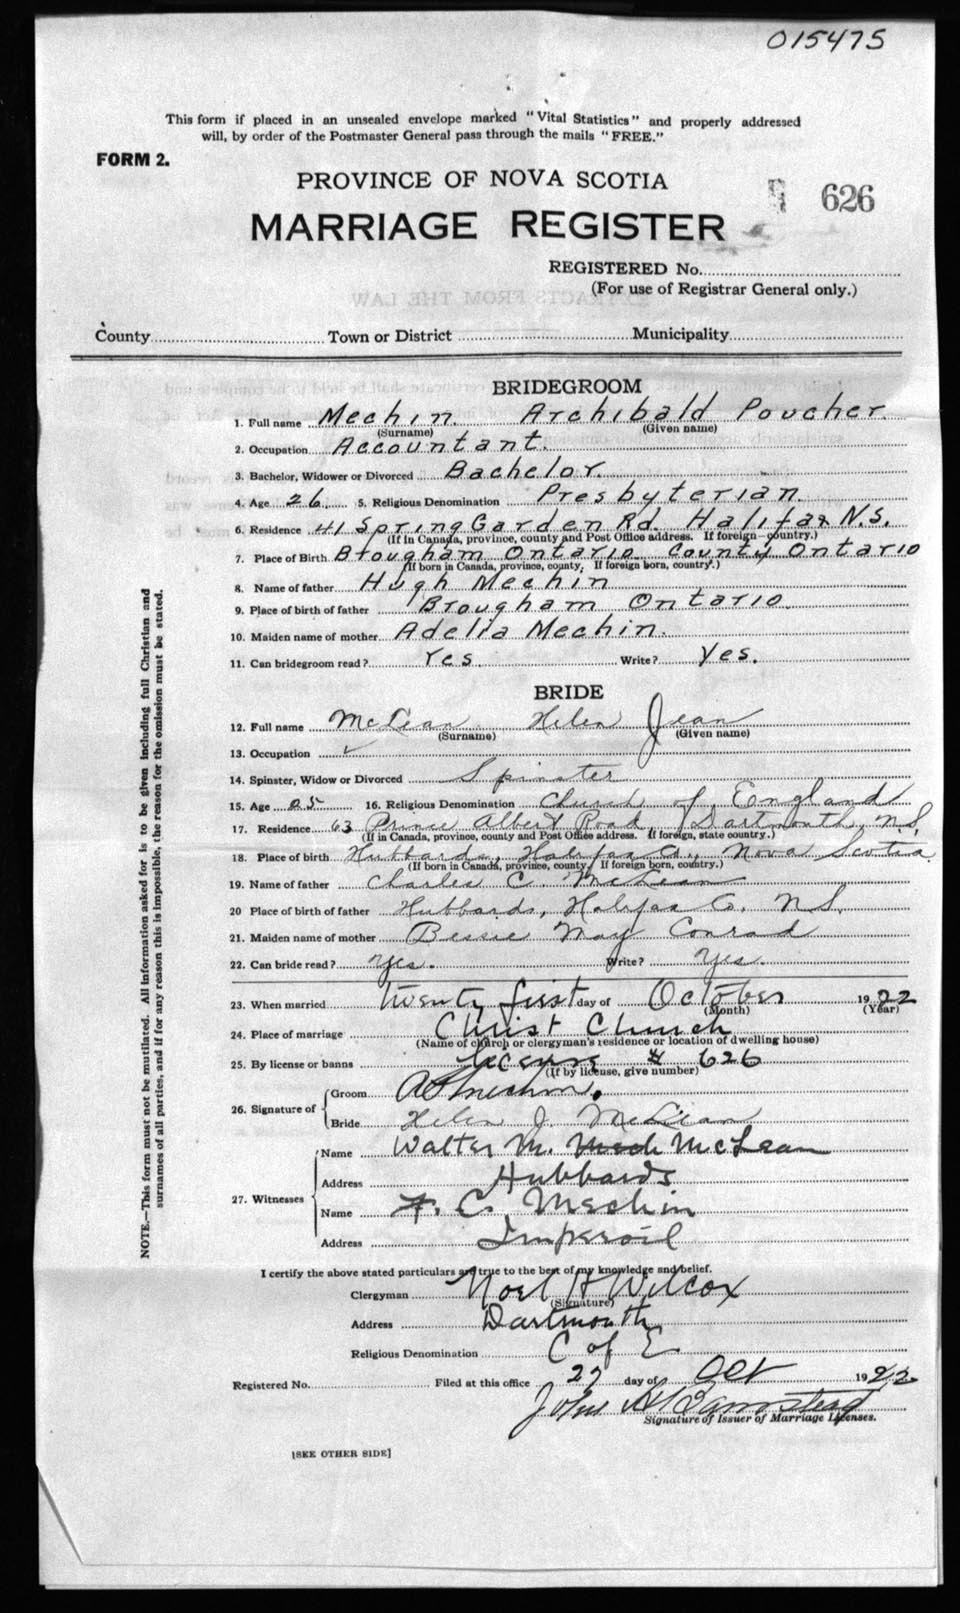 015475
This form if placed in an unsealed envelope marked "Vital Statistics" and properly addressed
will, by order of the Postmaster General pass through the mails "FREE."
FORM 2.
PROVINCE OF NOVA SCOTIA
626
MARRIAGE REGISTER
REGISTERED No.
(For use of Registrar General only.)
County Town or District Municipality
BRIDEGROOM
1. Full name Mechin. Archibald Poucher.
(Surname) (Given name)
2. Occupation Accountant.
3. Bachelor, Widower or Divorced Bachelor.
4. Age 26. 5. Religious Denomination Presbyterian.
6. Residence 41 Spring Garden Rd. Halifax N.S.
(If in Canada, province, county and Post Office address. If foreign country.)
7. Place of Birth Brougham Ontario. County Ontario
(If born in Canada, province, county. If foreign born, country.)
8. Name of father Hugh Mechin
9. Place of birth of father Brougham Ontario.
10. Maiden name of mother Adelia Mechin.
11. Can bridegroom read? Yes. Write? Yes.
BRIDE
12. Full name McLean Helen Jean
(Surname) (Given name)
13. Occupation ✓
14. Spinster, Widow or Divorced Spinster
15. Age 25 16. Religious Denomination Church of England
17. Residence 63 Prince Albert Road, Dartmouth, N.S.
(If in Canada, province, county and Post Office address. If foreign, state country.)
18. Place of birth Hubbards, Halifax Co., Nova Scotia
(If born in Canada, province, county. If foreign born, country.)
19. Name of father Charles C. McLean
20 Place of birth of father Hubbards, Halifax Co. N.S.
21. Maiden name of mother Bessie May Conrad
22. Can bride read? Yes. Write? Yes.
23. When married twenty first day of October 1922
(Month) (Year)
24. Place of marriage Christ Church
(Name of church or clergyman's residence or location of dwelling house)
25. By license or banns license # 626
(If by license, give number)
26. Signature of Groom A P Mechin.
Bride Helen J. McLean
27. Witnesses Name Walter M. McLean
Address Hubbards
Name F. C. Mechin
Address Imperoil
I certify the above stated particulars are true to the best of my knowledge and belief.
Clergyman Noel H Wilcox
(Signature)
Address Dartmouth
Religious Denomination C of E
Registered No. Filed at this office 27 day of Oct 1922
John H
Signature of Issuer of Marriage Licenses.
[SEE OTHER SIDE]
NOTE.—This form must not be mutilated. All information asked for is to be given including full Christian and
surnames of all parties, and if for any reason this is impossible, the reason for the omission must be stated.